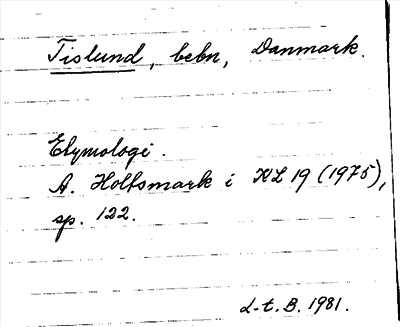 Tislund, bebn, Danmark.
Etymologi.
A. Holtsmark i KL 19 (1975),
sp. 122.
L-t. B. 1981.